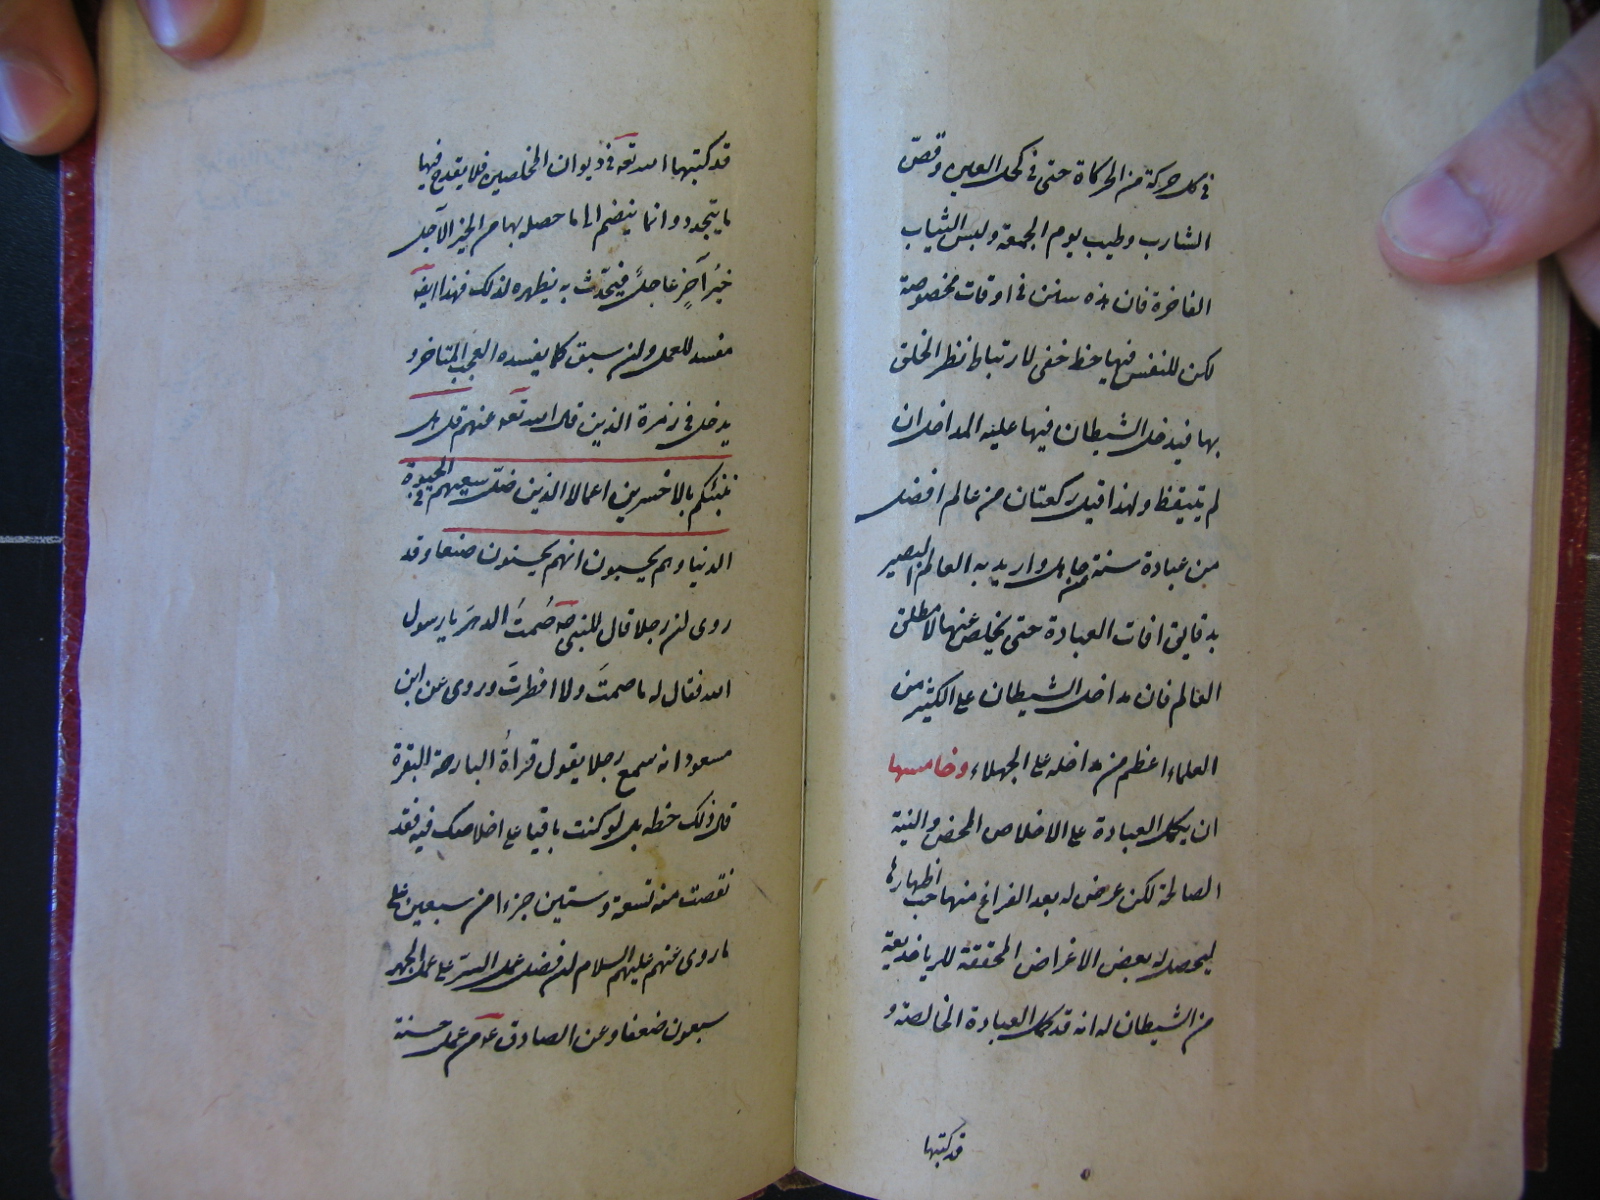 في كل حركة من الحركاة حتى في كحل العين وقص
الشارب وطيب يوم الجمعة ولبس الثياب
الفاخرة فان هذه سنن في اوقات مخصوصة
لكن للنفس فيها حظ خفى لارتباط نظر الخلق
بها فيدخل الشيطان فيها عليه المداخل ان
لم يتيقظ ولهذا قيل ركعتان من عالم افضل
من عبادة سنة من جاهل واريد به العالم البصير
بدقايق افات العبادة حتى يخلص عنها لا مطلق
العالم فان مداخل الشيطان على الكثير من
العلماء اعظم من مداخله على الجهلاء وخامسها
ان يكمل العبادة على الاخلاص المحض والنية
الصالحة لكن عرض له بعد الفراغ منها حب اظهارها
ليحصل له بعض الاغراض المحققة للريا خديعة
من الشيطان له انه قد كمل العبادة الخالصة و
قد كتبها
قد كتبها الله تعه في ديوان المخلصين فلا يقدح فيها
ما يتجدد وانما ينضم الى ما حصل بها من الخير الآجل
خيرُ آخرٍ عاجلً فيتحدّث به يظهره لذلك فهذا ايضه
مفسد للعمل ولن سبق كما يفسده العجب المتاخر و
يدخل في زمرة الذين قال الله تعه عنهم قل هل
ننبئكم بالاخسرين اعمالا الذين ضل سعيهم في الحيوة
الدنيا وهم يحسبون انهم يحسنون صنعا وقد
روى لن رجلا قال للنبي صه صُمتُ الدهرَ يا رسول
الله فقال له ما صمتَ ولا افطرتَ وروى عن ابن
مسعود انه سمع رجلا يقول قراةُ البارحة البقرة
قال ذلك حظه بل لو كنت باقيا على اخلاصك فيه فقد
نقصت منه تسعة وستين جزءا من سبعين على
ما روى عنهم عليهم السلام لن فضل عمل السر على عمل الجهر
سبعون ضعفا وعن الصادق عه من عمل حسنة